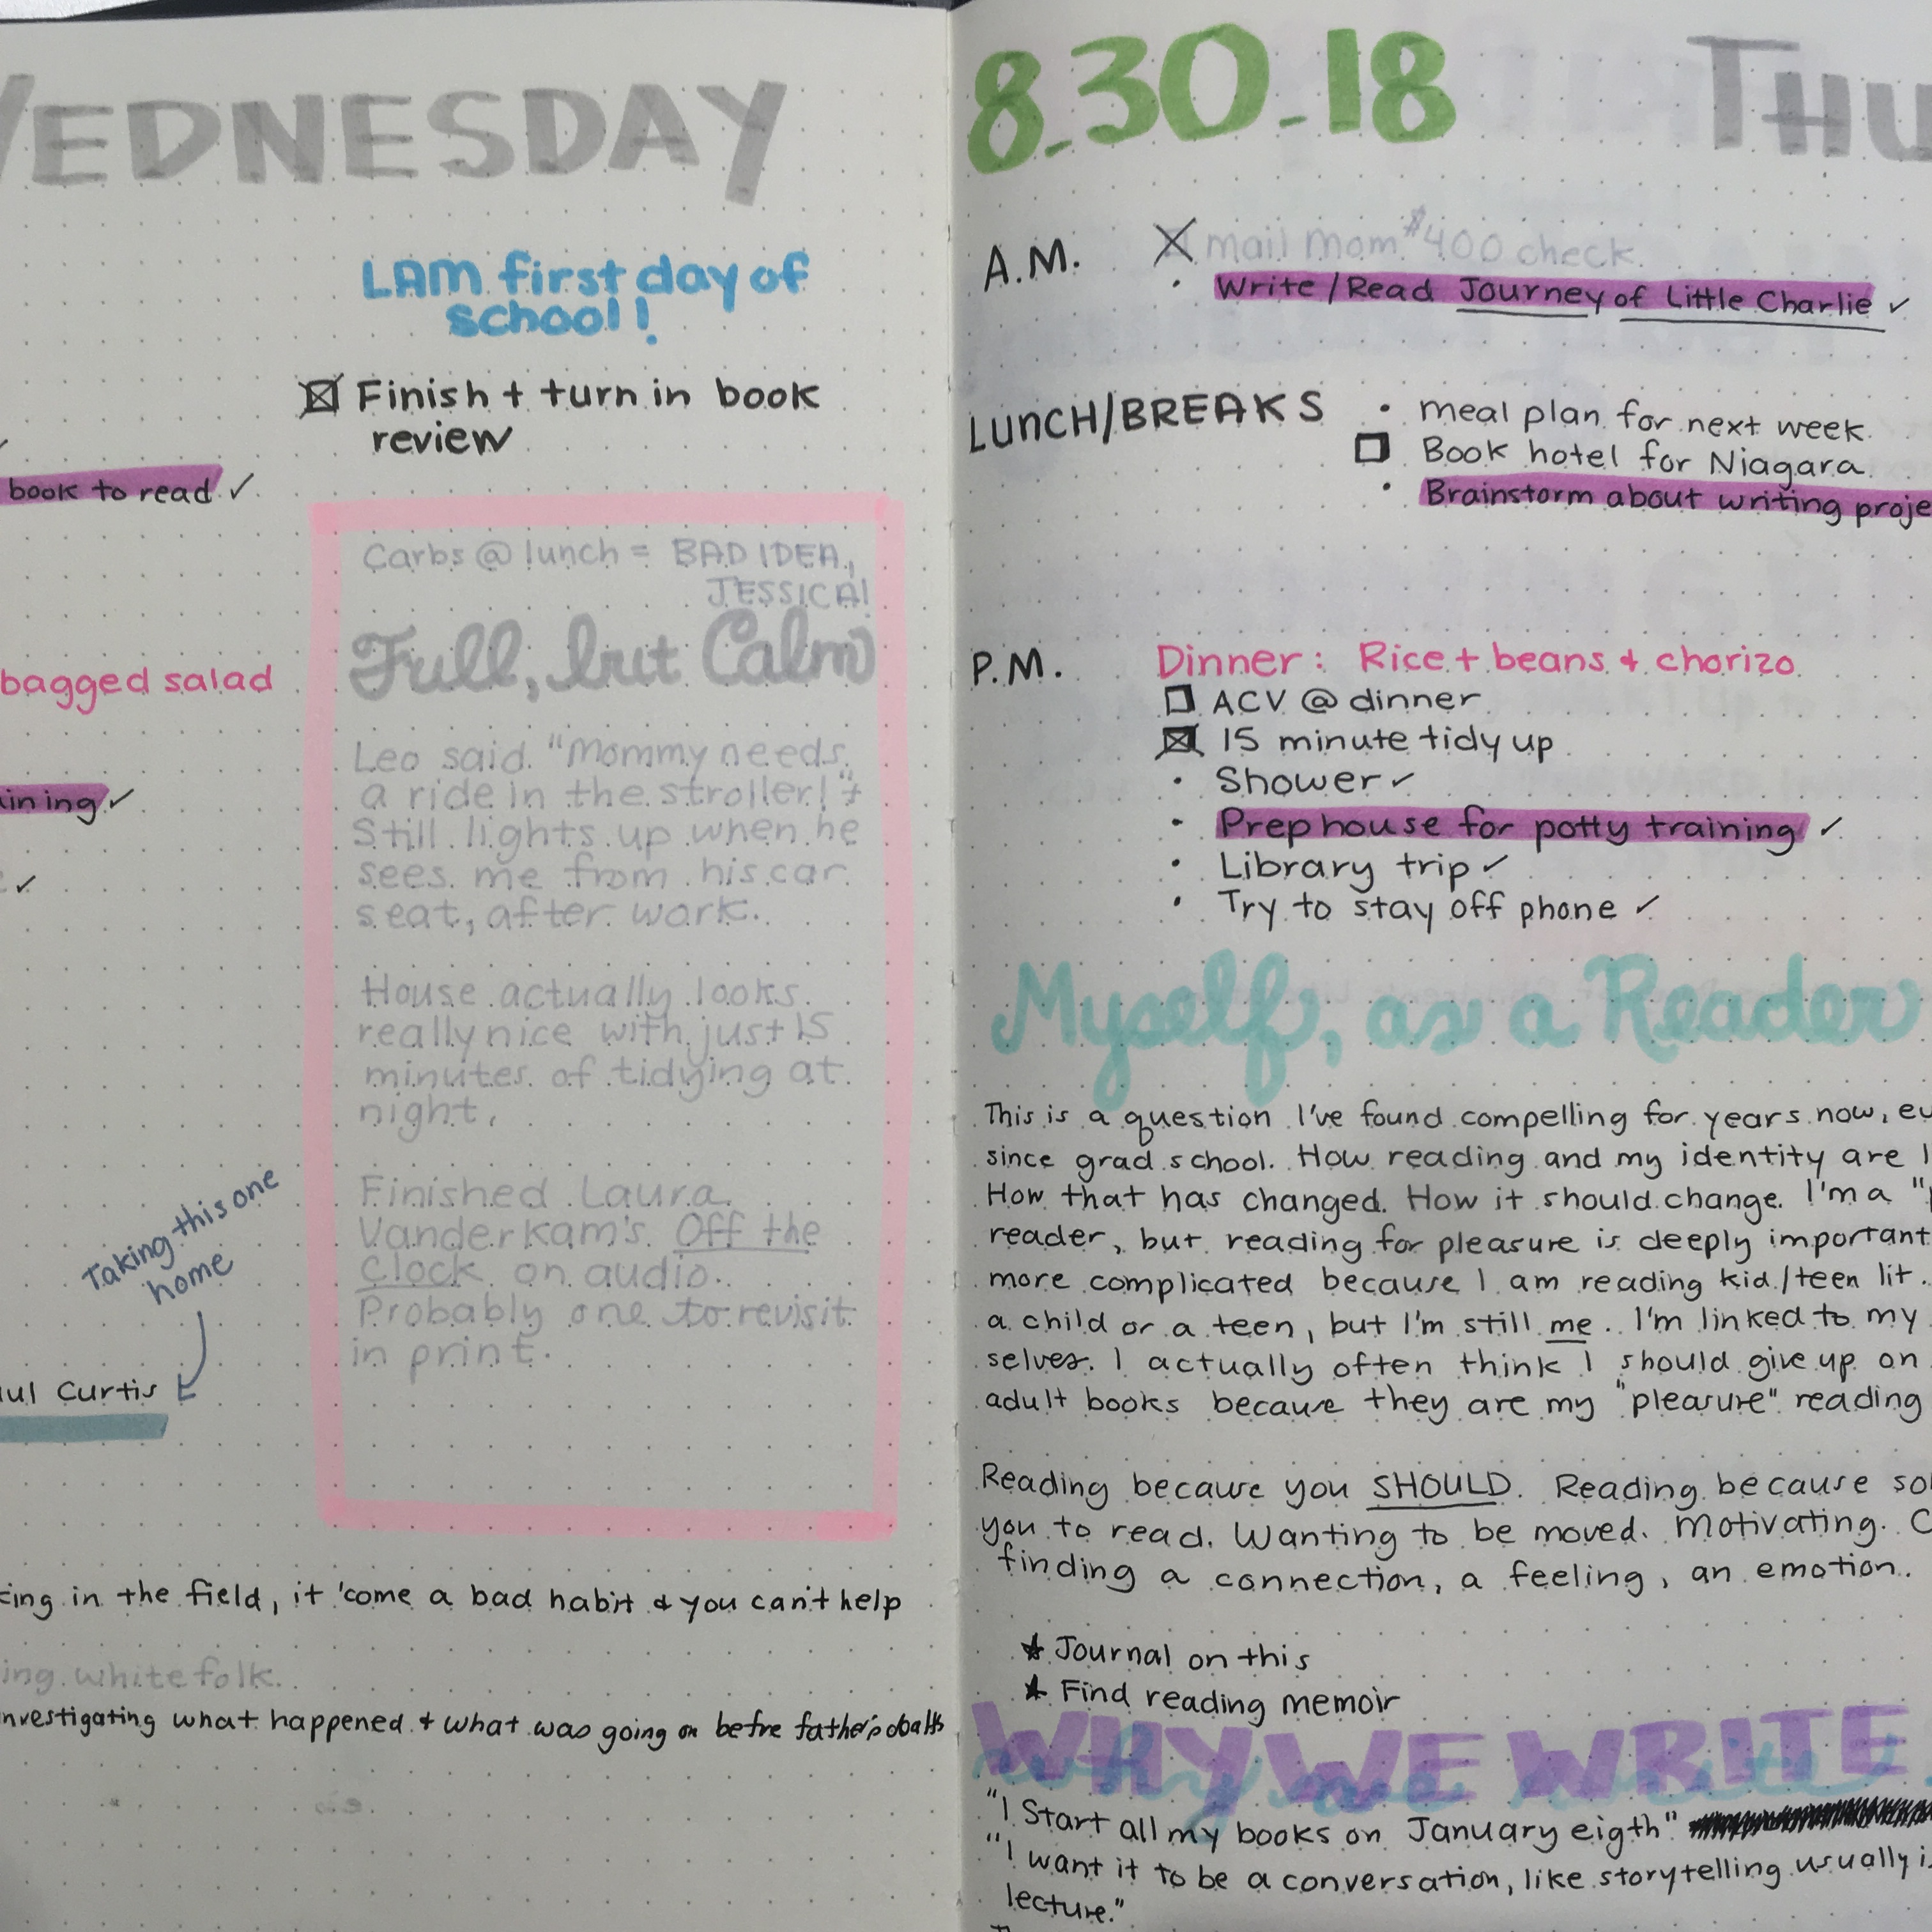 WEDNESDAY
LAM first day of
school!
Finish + turn in book
review
book to read ✓
Carbs @ lunch = BAD IDEA,
JESSICA!
Full, but Calm
bagged salad
Leo said "Mommy needs
a ride in the stroller!" +
Still lights up when he
sees me from his car
seat, after work.
ining ✓
✓
House actually looks
really nice with just 15
minutes of tidying at
night.
Finished Laura
Vanderkam's Off the
Clock on audio.
Probably one to revisit
in print.
Taking this one
home
ul Curtis
cing in the field, it 'come a bad habit & you can't help
ing white folk.
nvestigating what happened & what was going on befre father's death
8.30.18 THU
A.M.
mail mom $400 check.
• Write/Read Journey of Little Charlie ✓
LUNCH/BREAKS
• meal plan for next week
Book hotel for Niagara
• Brainstorm about writing proje
P.M.
Dinner: Rice + beans & chorizo
ACV @ dinner
15 minute tidy up
• Shower ✓
• Prep house for potty training ✓
• Library trip ✓
• Try to stay off phone ✓
Myself, as a Reader
This is a question I've found compelling for years now, ev
since grad school. How reading and my identity are l
How that has changed. How it should change. I'm a "
reader, but reading for pleasure is deeply important
more complicated because I am reading kid/teen lit.
a child or a teen, but I'm still me. I'm linked to my
selves. I actually often think I should give up on
adult books because they are my "pleasure" reading
Reading because you SHOULD. Reading because so
you to read. Wanting to be moved. Motivating. C
finding a connection, a feeling, an emotion.
★ Journal on this
★ Find reading memoir
WHY WE WRITE
why we write
"I Start all my books on January eigth"
"I want it to be a conversation, like storytelling usually is
lecture."